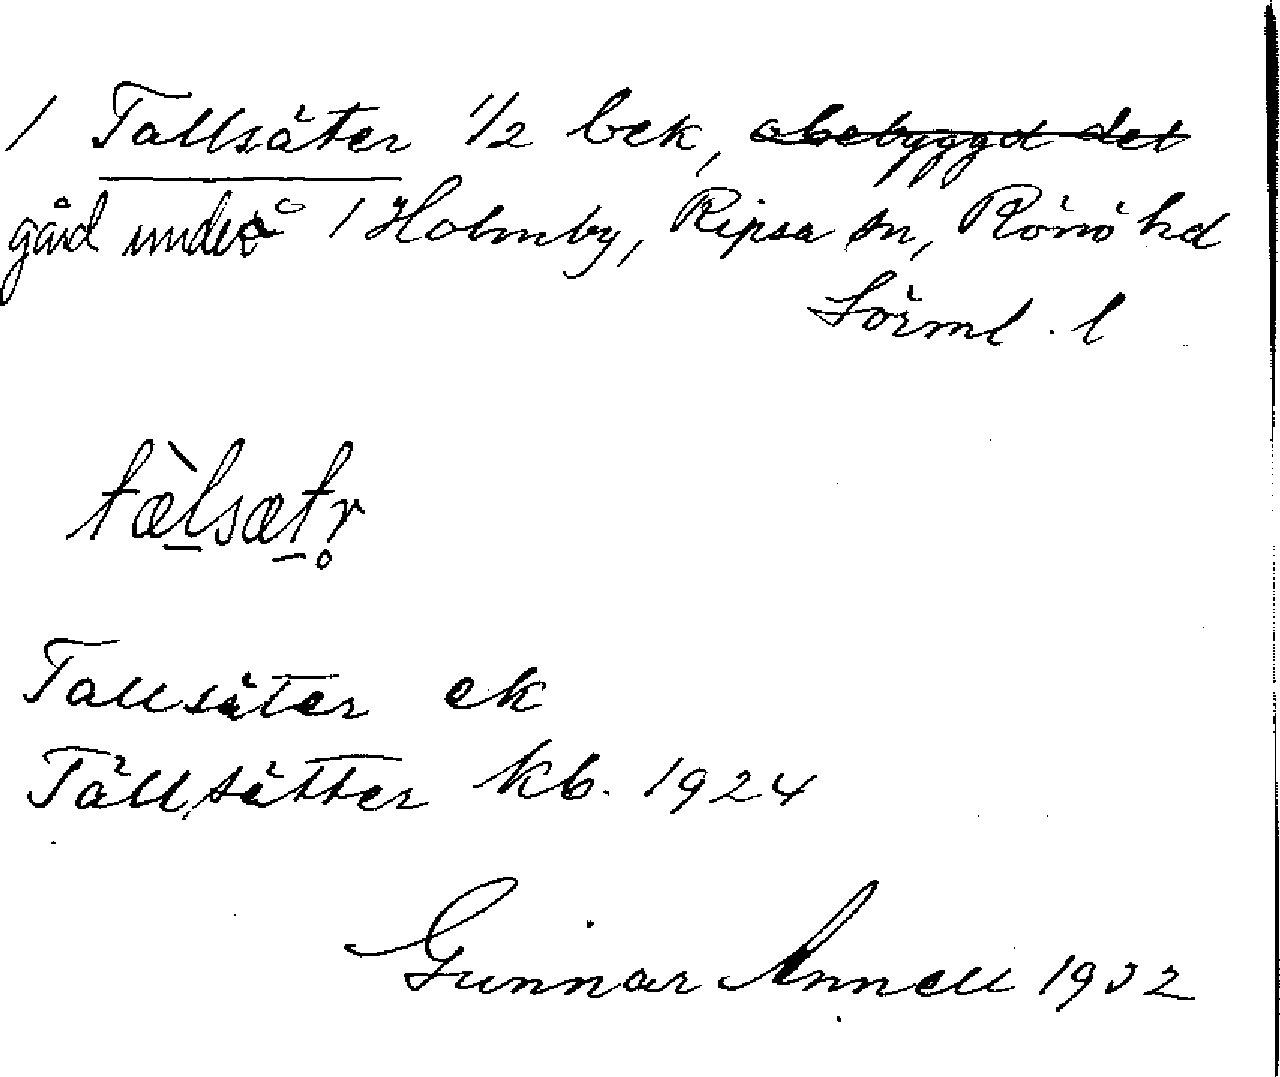 / Tallsäter 1/2 bek, obebyggd del
gård under / Holmby, Ripsa sn, Rönö hd
Sörml. l
tæ̀lsætr̥
Tallsäter ek
Tällsätter kb. 1924
Gunnar Annell 1932